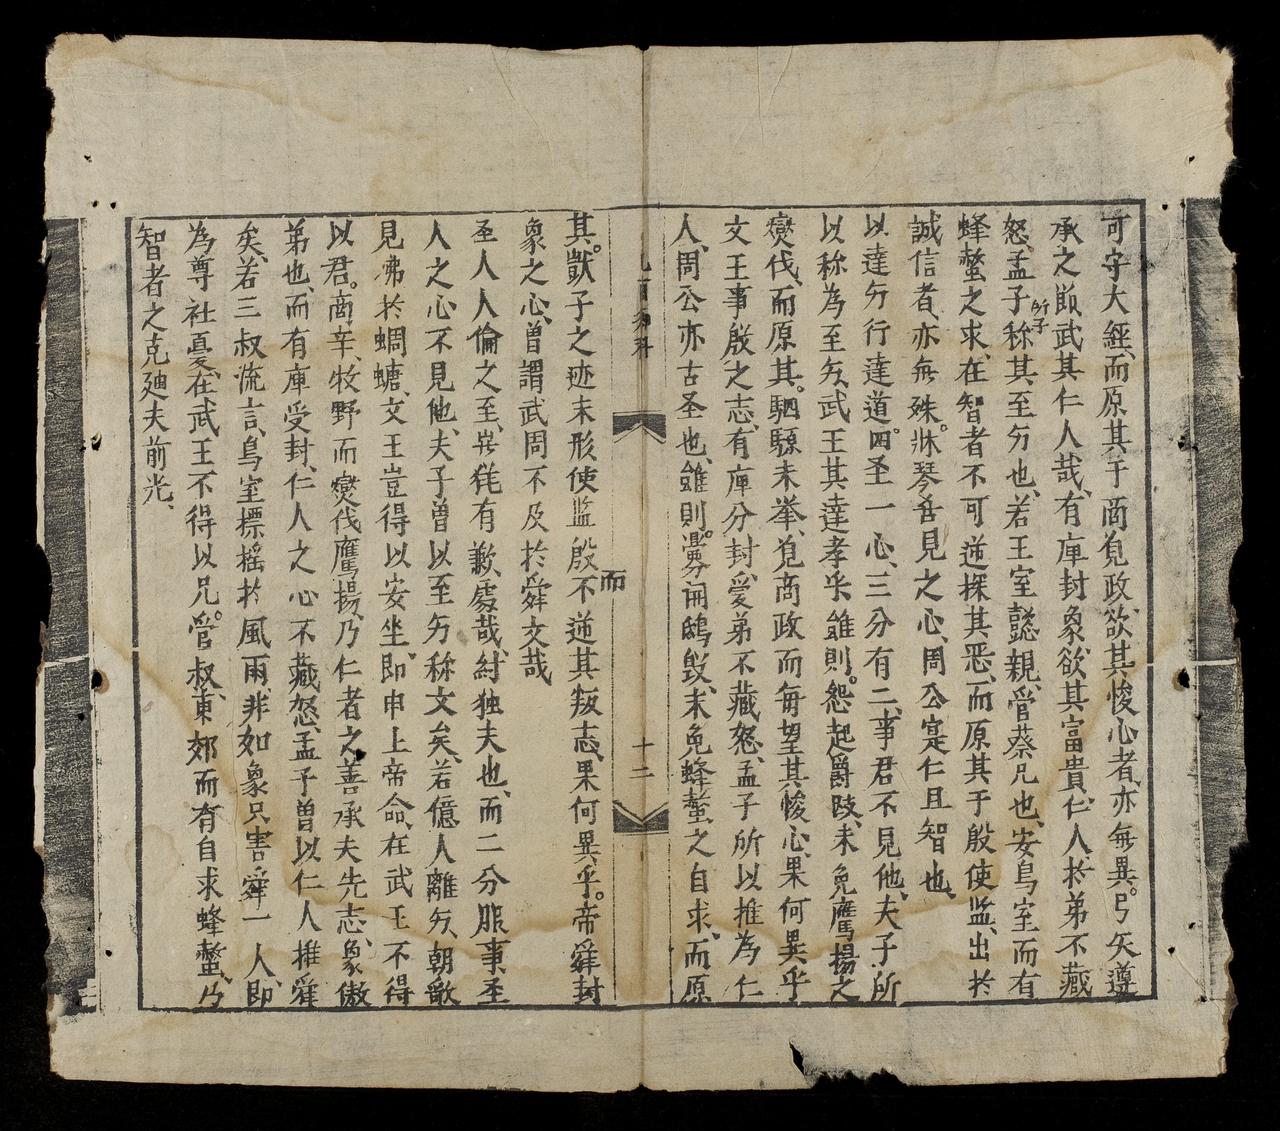 可守大經、而原其于商覓政、欲其悛心者、亦無異。弓矢遵
承之節、武其仁人哉、有庳封象、欲其富貴、仁人於弟不藏
怒、孟子称其至矣也、若王室懿親、管蔡兄也、安鳥室而有
所子
蜂螫之求、在智者不可逆探其恶、而原其于殷使監、出於
誠信者、亦無殊。牀琴吾見之心、周公寔仁且智也、
以達矣行達道。四圣一心、三分有二、事君不見他、夫子所
以称為至矣、武王其達孝乎、雖則。怨起爵跂、未免鷹揚之
爕伐、而原其。駟騵未挙、覓商政而每望其悛心、果何異乎
文王事殷之志、有庳分封、爱弟不藏怒、孟子所以推為仁
人、周公亦古圣也、雖則。鴞毁、未免蜂螫之自求、而原
十二
而
其。猷子之迹未形使監殷不逆其叛志、果何異乎。帝舜封
象之心、曽謂武周不及於舜文哉
圣人人倫之至、毫有歉處哉、紂独夫也、而二分服事、圣
人之心不見他、夫子曽以至矣称文矣、若億人離矣、朝歌
見沸於蜩螗、文王豈得以安坐、即申上帝命、在武王不得
以君。商辛、牧野而爕伐鷹揚、乃仁者之善承夫先志、象傲
弟也、而有庳受封、仁人之心不藏怒、孟子曽以仁人推舜
矣、若三叔流言、鳥室標摇於風雨、非如象只害舜一人、即
為尊社憂、在武王不得以兄。管叔、東郊而有自求蜂螫、乃
智者之克廸夫前光、